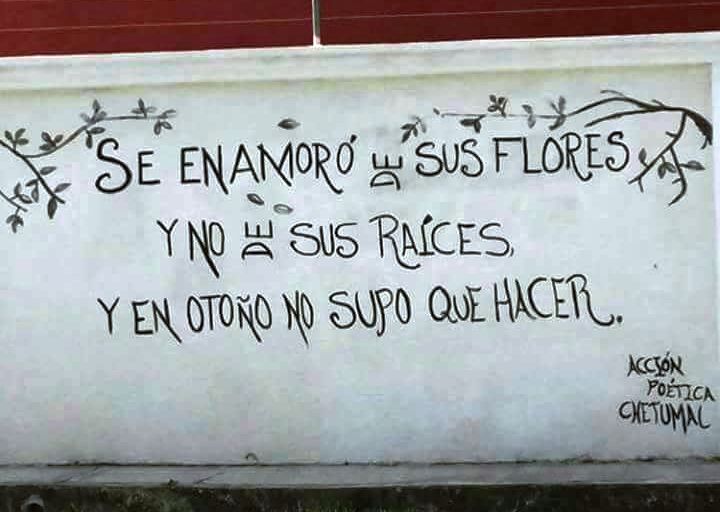 SE ENAMORÓ DE SUS FLORES
Y NO DE SUS RAÍCES,
Y EN OTOÑO NO SUPO QUE HACER.
ACCIÓN
POÉTICA
CHETUMAL